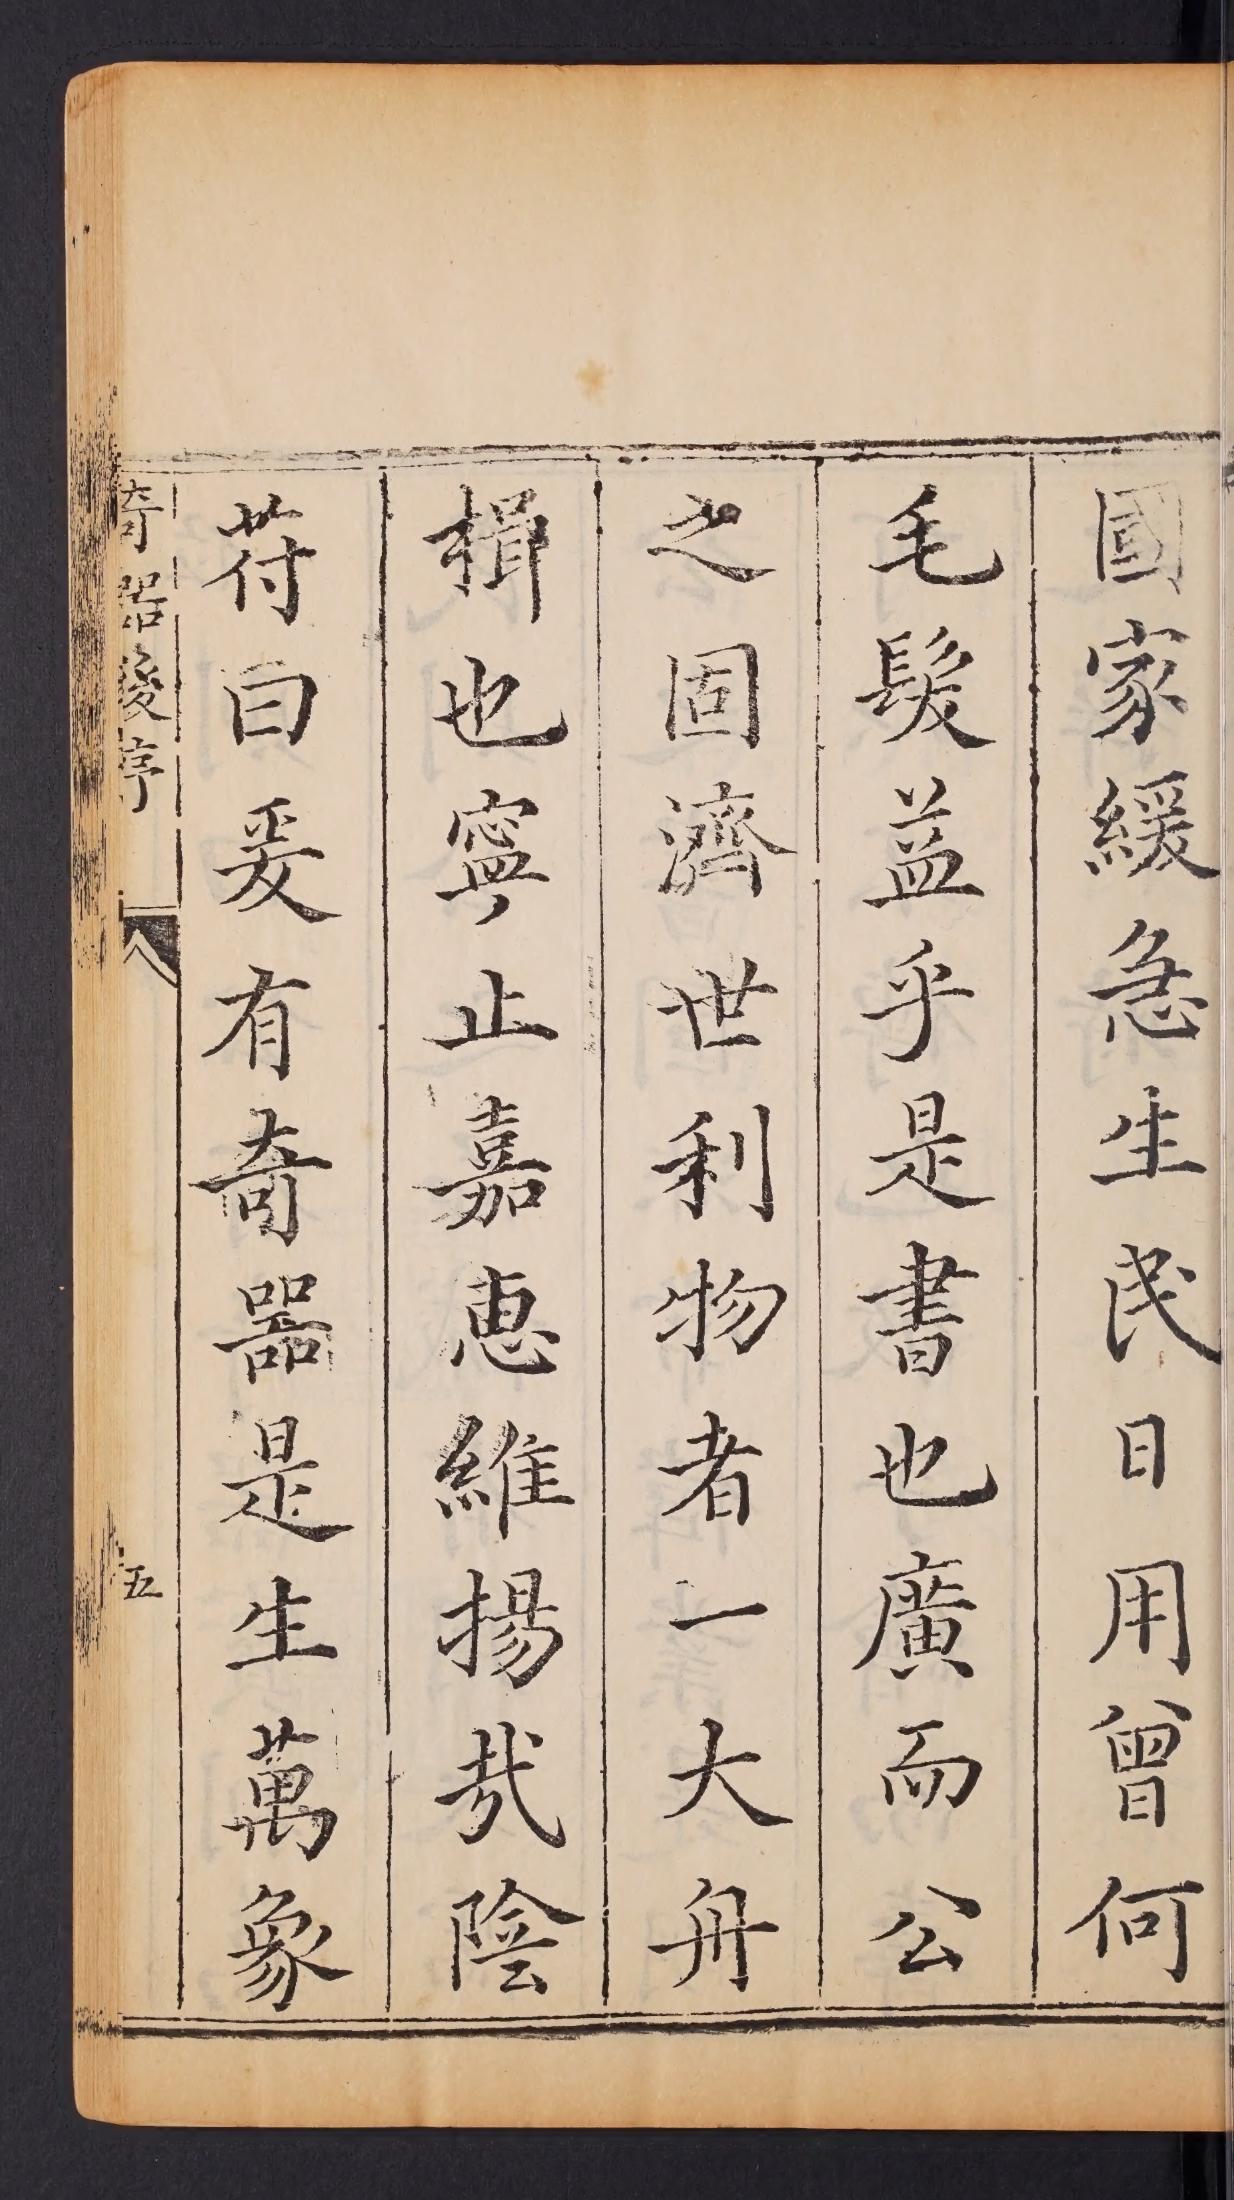 國家緩急生民日用曾何
毛髮益乎是書也廣而公
之固濟世利物者一大舟
楫也寧止嘉惠維揚㢤陰
苻曰爰有奇器是生萬象
奇器後序
五